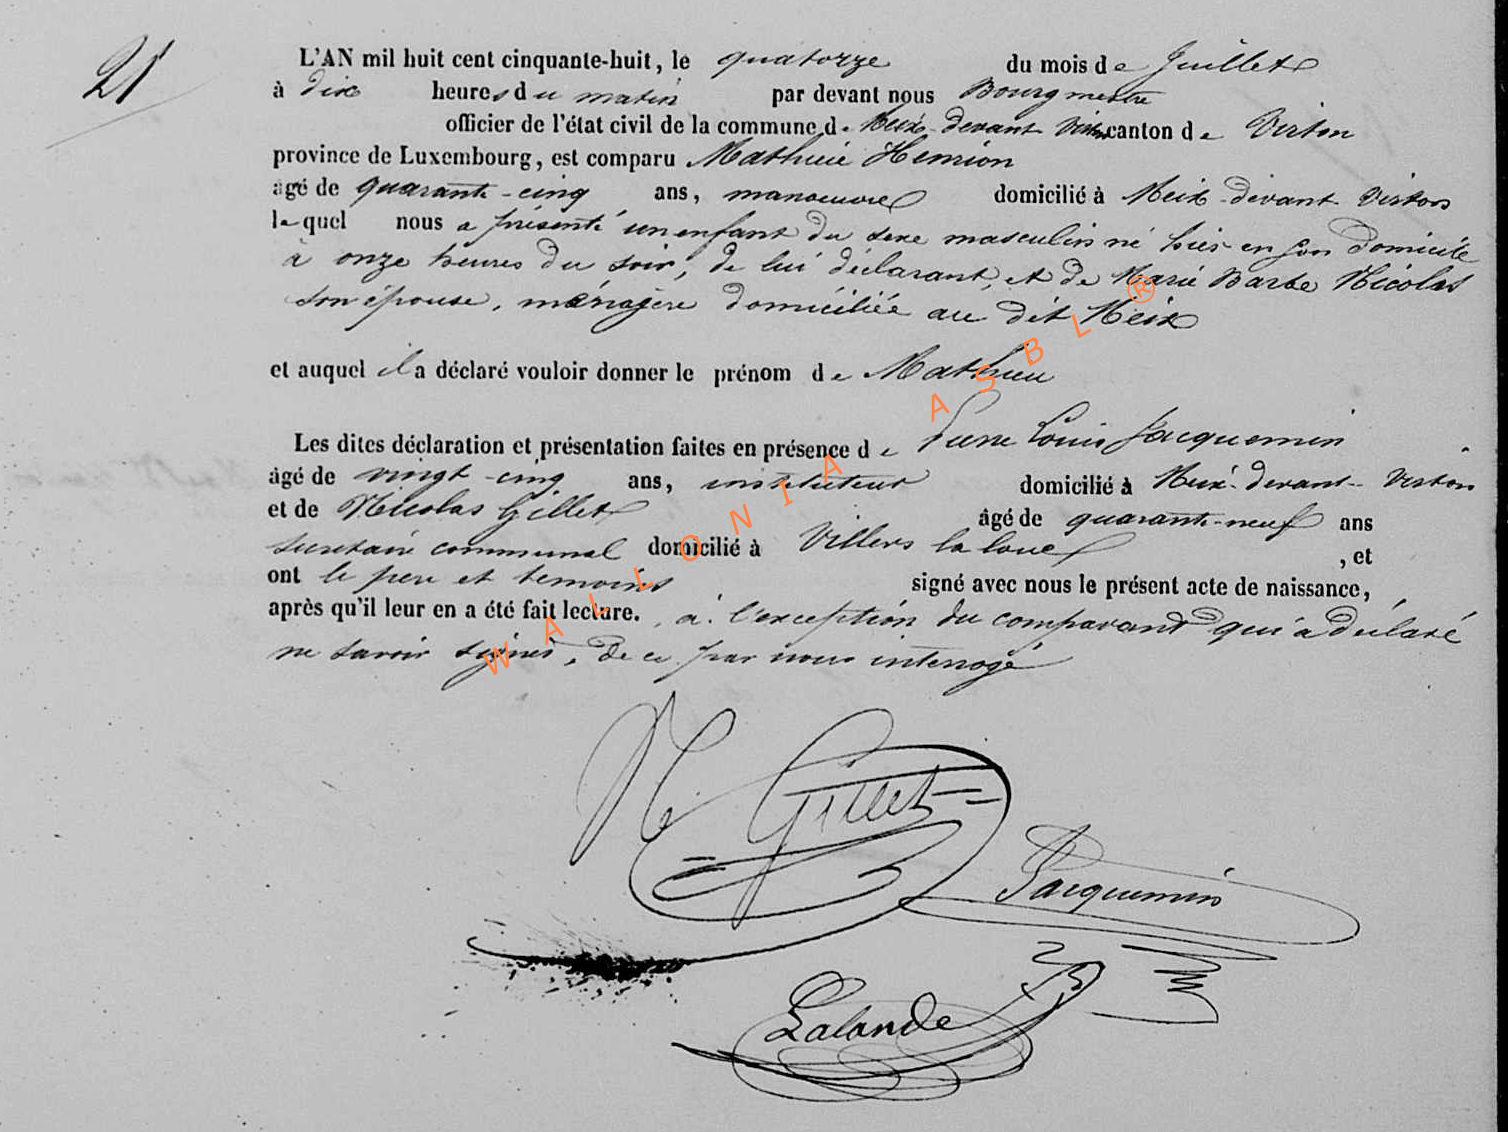 21
L'AN mil huit cent cinquante-huit, le quatorze du mois de Juillet
à dix heures du matin par devant nous Bourgmestre
officier de l'état civil de la commune de Meix-devant Virton canton de Virton
province de Luxembourg, est comparu Mathieu Henrion
âgé de quarante-cinq ans, manoeuvre domicilié à Meix-devant-Virton
lequel nous a présenté un enfant du sexe masculin né hier en son domicile
à onze heures du soir, de lui déclarant, et de Marie Barbe Nicolas
son épouse, ménagère domiciliée au dit Meix
et auquel il a déclaré vouloir donner le prénom de Mathieu
Les dites déclaration et présentation faites en présence de Pierre Louis Jacquemin
âgé de vingt-cinq ans, instituteur domicilié à Meix-devant-Virton
et de Nicolas Gillet âgé de quarante-neuf ans
secrétaire communal domicilié à Villers la loue , et
ont le père et témoins signé avec nous le présent acte de naissance,
après qu'il leur en a été fait lecture. , à l'exception du comparant qui a déclaré
ne savoir signer, de ce par nous interrogé
N. Gillet
Jacquemin
Lalande
WALLONIA ASBL ®